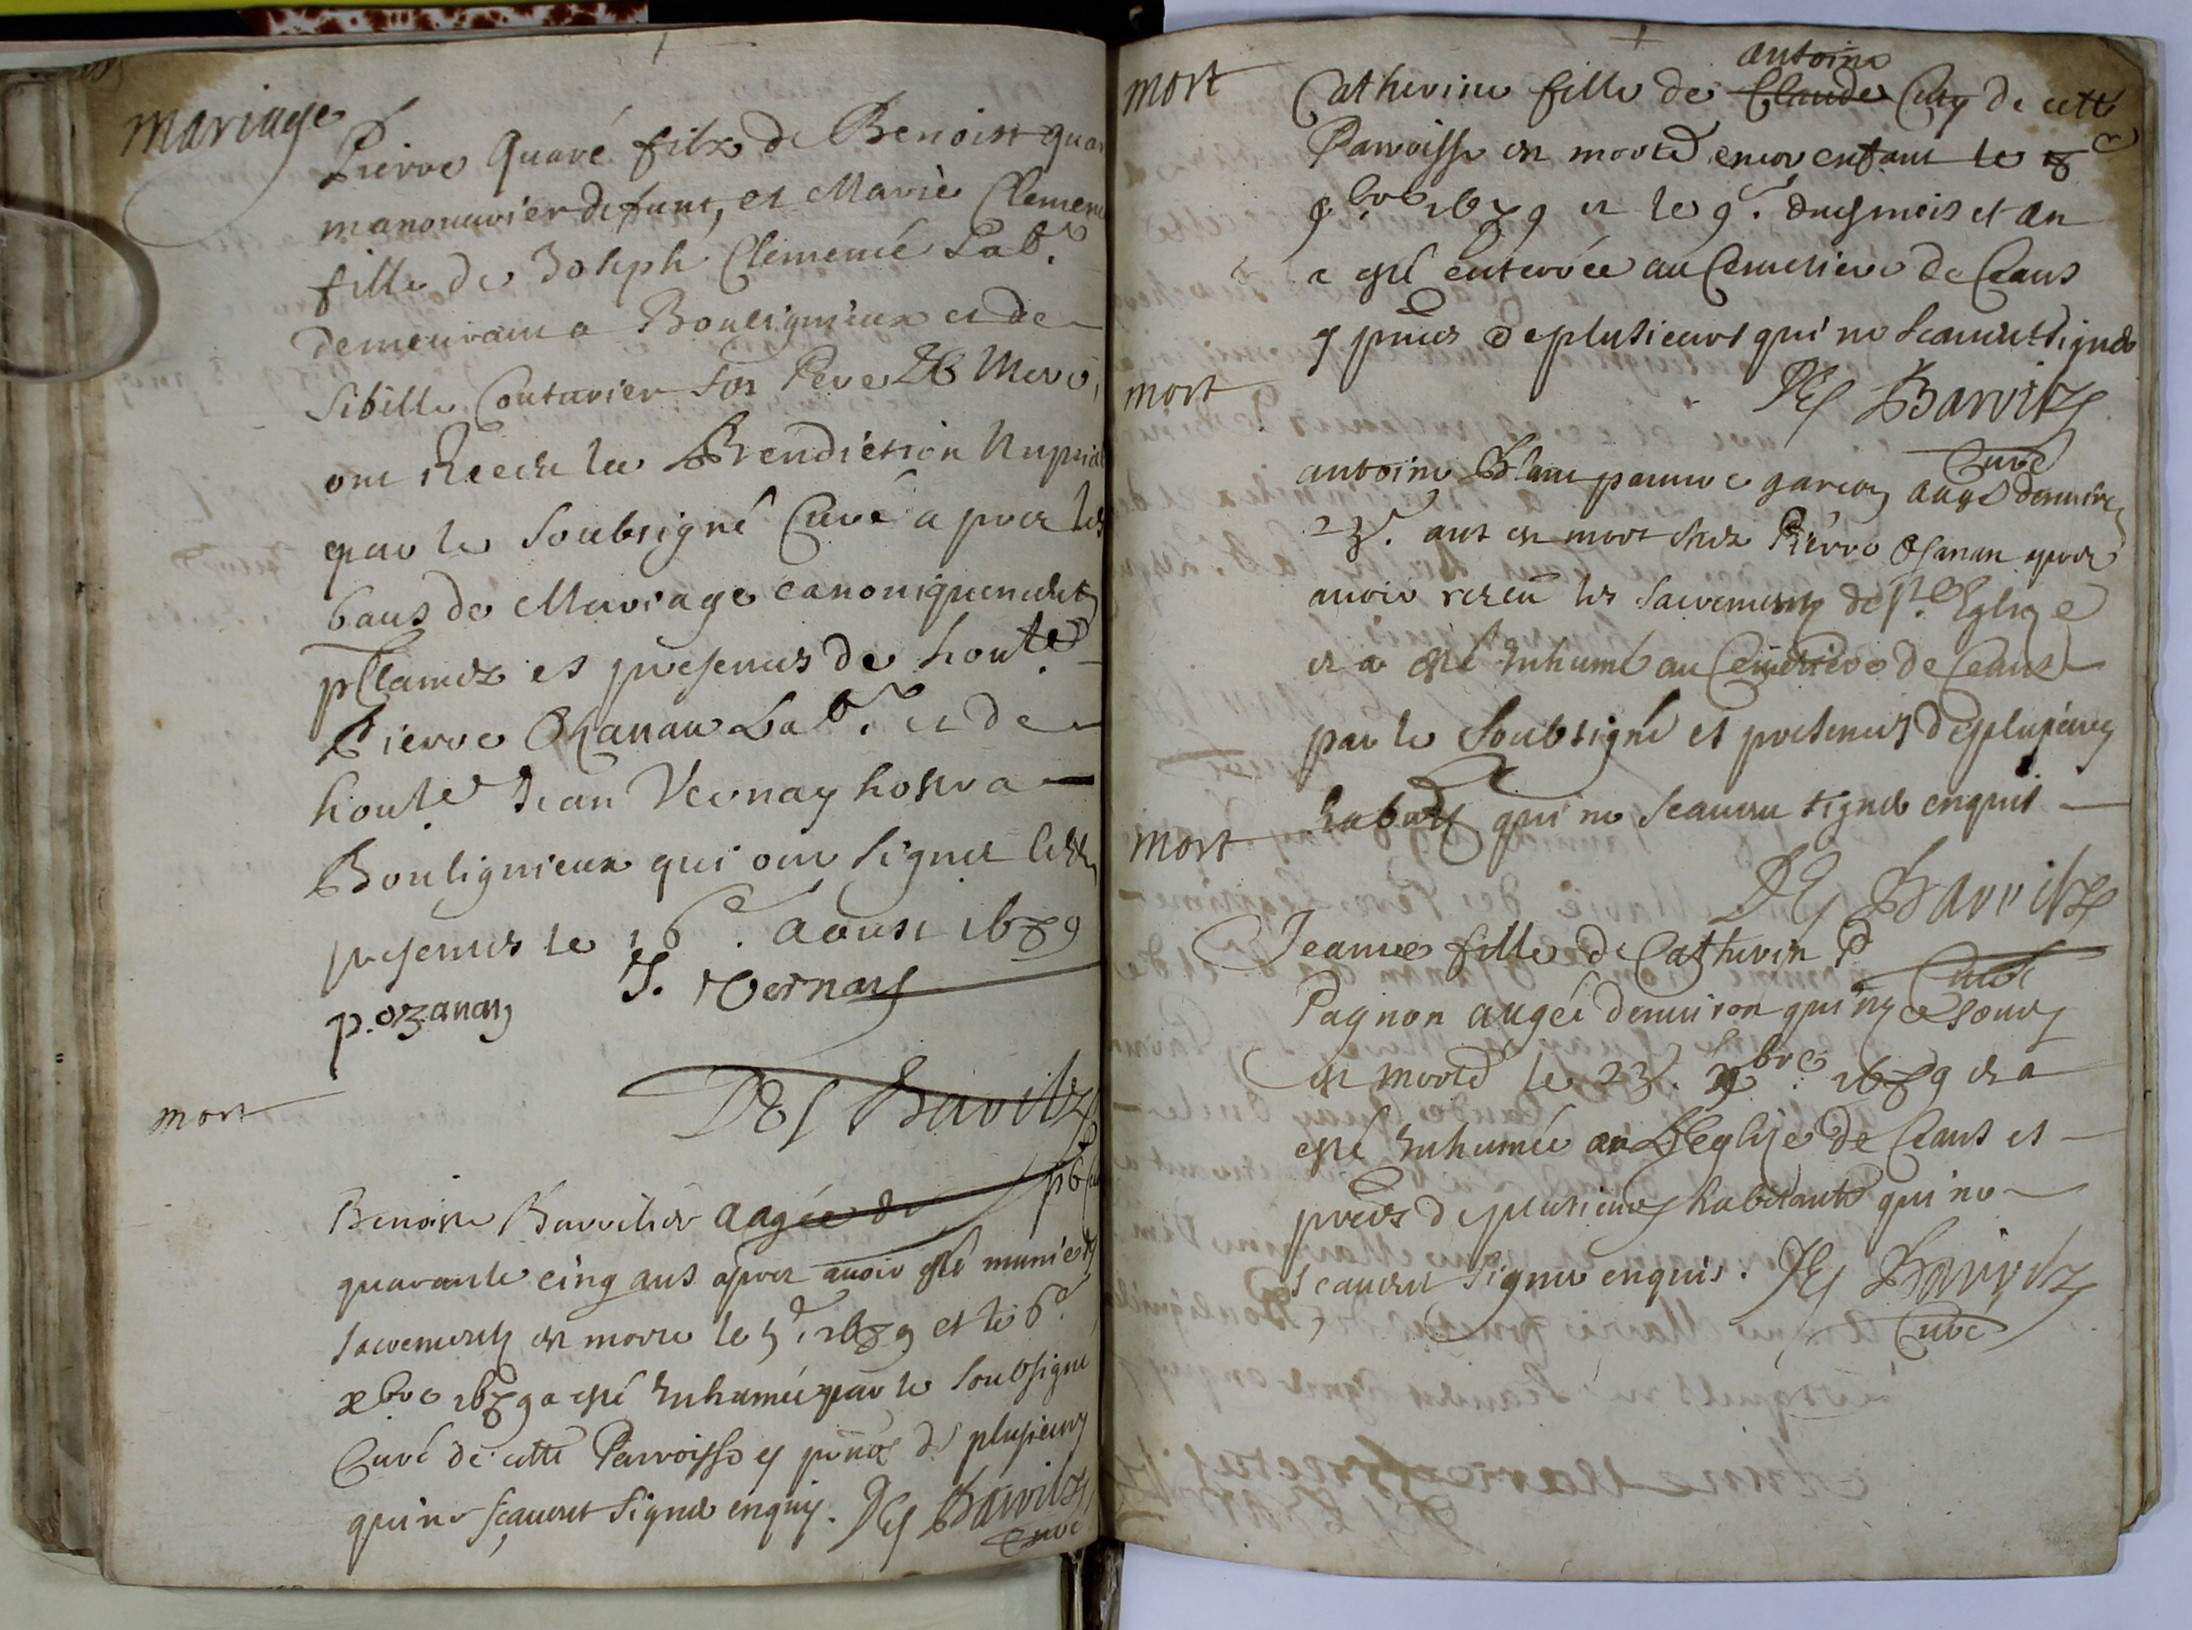 mariage
Pierre Quaré filz de Benoist quar
manouurier defunt, et Marie Clemenc
fille de Joseph Clemencé Lab.r
demeurant a Bouligneux et de
Sibille Couturier son Pere & Mere,
ont Receu la Benediction Nuptial
par le Soubsigné Curé apres les
bans de Mariage canoniquement
pclamez et presences de hon.te
Pierre Ozanan Lab.r et de
hon.te Jean Vernay hoste a
Bouligneux qui ont signer
presences le 16.e Aoust 1679
p. ozanan J. Vernay
Des Barvilz
mort
Benoiste aagée de
quarante cinq ans apres auoir esté munie des
Sacrements est morte le 5.e 1679 et le 6.e
xbre 1679 a esté Inhumée par le soubsigné
Curé de cette Parroisse et pnce de plusieurs
qui ne scauent signer enquis. Des Barvilz
Curé
mort
antoine
Catherine fille de Claude Cuy de cette
Parroisse est morte encor enfant le 8e
9bre 1679 et le 9e. dud mois et an
a esté enterrée au Cemetiere de Ceans
et pnces de plusieurs qui ne scauent signer
Des Barvilz
Curé
mort
antoine Blanc pauure garcon aagé denuiron
23. ans est mort chez Pierre Osanan apres
auoir receu les Sacrements de S.te Eglize
et a esté Inhumé au Cemetiere de Ceans
par le Soubsigné et presences de plusieurs
habits qui ne scauent signer enquis
Des Barvilz
Curé
mort
Jeanne fille de Catherin P
Pagnon aagée denuiron quinze jours
est morte le 23. xbre. 1679 et a
esté Inhumée en L'Eglise de Ceans et
pnces de plusieurs habitants qui ne
scauent signer enquis. Des Barvilz
Curé